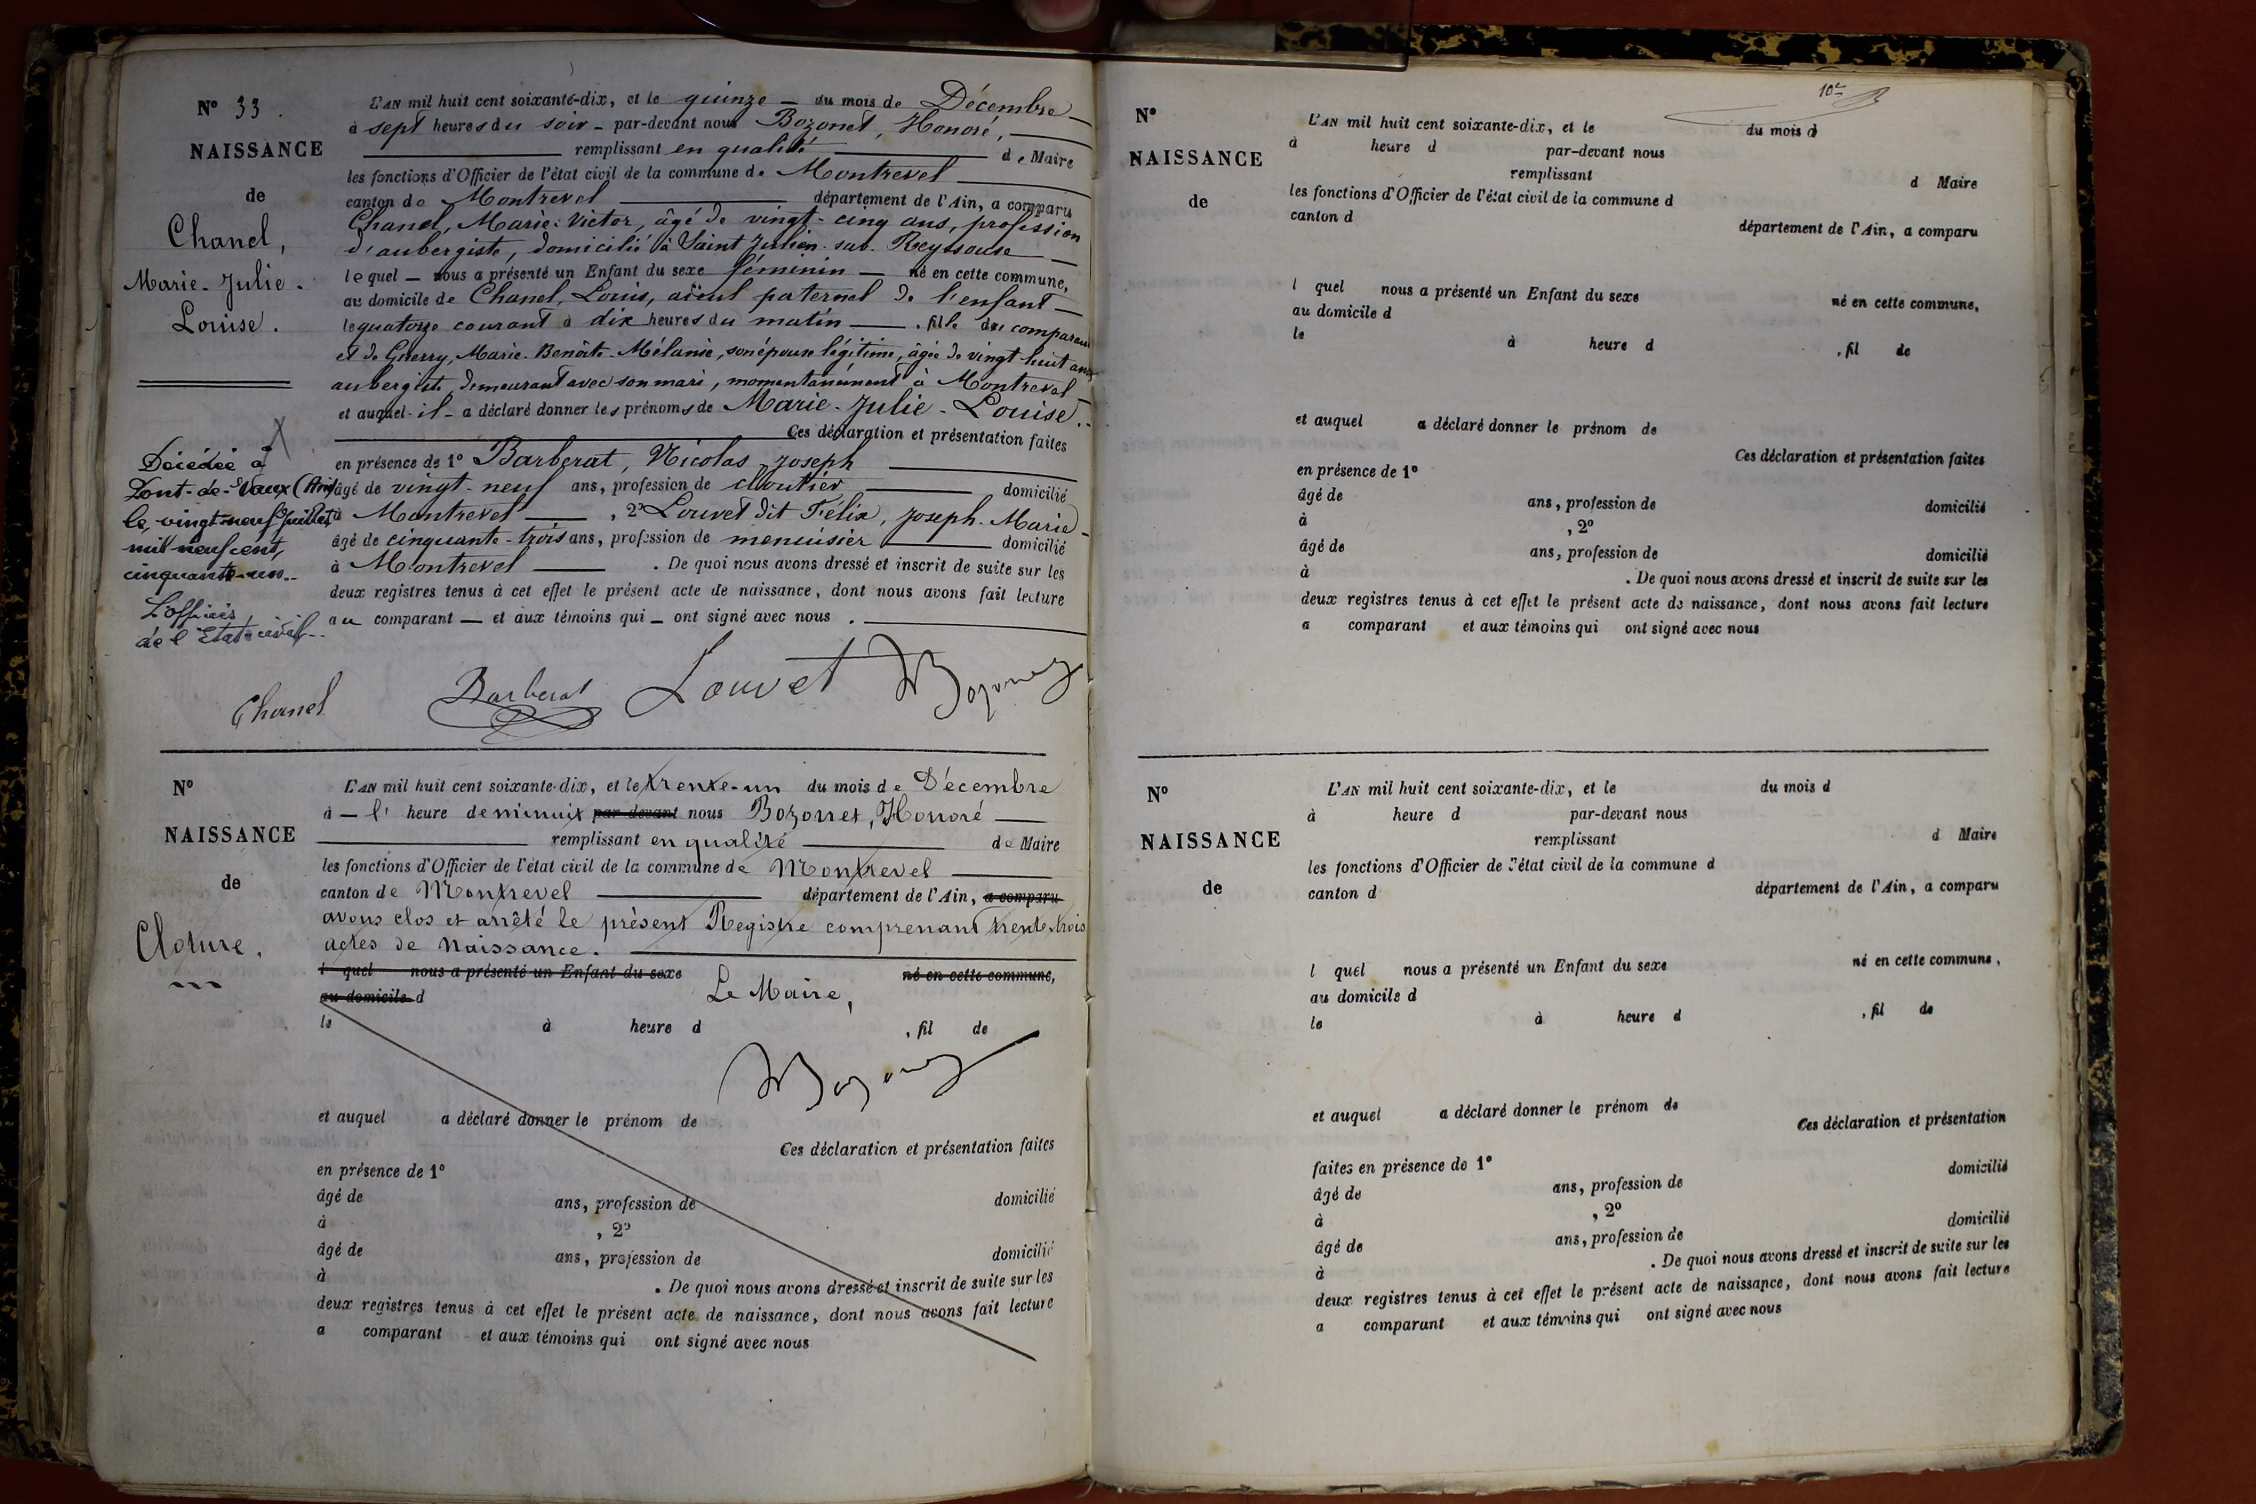 N° 33.
NAISSANCE
de
Chanel,
Marie-Julie-
Louise.
L'AN mil huit cent soixante-dix, et le quinze — du mois de Décembre —
à sept heures du soir - par-devant nous Bozonet, Honoré, —
remplissant en qualité de Maire
les fonctions d'Officier de l'état civil de la commune de Montrevel
canton de Montrevel département de l'Ain, a comparu
Chanel, Marie-Victor, âgé de vingt-cinq ans, profession
d'aubergiste, domicilié à Saint Julien-sur-Reyssouse —
lequel — nous a présenté un Enfant du sexe féminin — né en cette commune,
au domicile de Chanel, Louis, aïeul paternel de l'enfant —
le quatorze courant à dix heures du matin —, fille du comparant
et de Guerry, Marie-Benoite-Mélanie, son épouse légitime, âgée de vingt-huit ans
aubergiste, demeurant avec son mari, momentanément à Montrevel —
et auquel - il - a déclaré donner les prénoms de Marie-Julie-Louise.
Ces déclaration et présentation faites
en présence de 1° Barberat, Nicolas Joseph
âgé de vingt-neuf ans, profession de cloutier domicilié
à Montrevel —, 2° Louvet dit Félix, Joseph-Marie -
âgé de cinquante-trois ans, profession de menuisier domicilié
à Montrevel —. De quoi nous avons dressé et inscrit de suite sur les
deux registres tenus à cet effet le présent acte de naissance, dont nous avons fait lecture
au comparant — et aux témoins qui — ont signé avec nous.
Décédée à
Pont-de-Vaux (Ain)
le vingt-neuf Juillet
mil neuf cent
cinquante-un.
L'officier
de l'Etat civil.
Chanel Barberat Louvet Bozonet
N°
NAISSANCE
de
Cloture.
L'AN mil huit cent soixante-dix, et le trente-un du mois de Décembre
à — l' heure de minuit par-devant nous Bozonet, Honoré —
remplissant en qualité de Maire
les fonctions d'Officier de l'état civil de la commune de Montrevel
canton de Montrevel département de l'Ain, a comparu
avons clos et arrêté le présent Registre comprenant trente-trois
actes de Naissance.
l quel nous a présenté un Enfant du sexe né en cette commune,
au domicile d Le Maire,
le à heure d , fil de
Bozonet
et auquel a déclaré donner le prénom de
Ces déclaration et présentation faites
en présence de 1°
âgé de ans, profession de domicilié
à , 2°
âgé de ans, profession de domicilié
à . De quoi nous avons dressé et inscrit de suite sur les
deux registres tenus à cet effet le présent acte de naissance, dont nous avons fait lecture
a comparant et aux témoins qui ont signé avec nous
10e
N°
NAISSANCE
de
L'AN mil huit cent soixante-dix, et le du mois d
à heure d par-devant nous
remplissant d Maire
les fonctions d'Officier de l'état civil de la commune d
canton d département de l'Ain, a comparu
l quel nous a présenté un Enfant du sexe né en cette commune,
au domicile d
le à heure d , fil de
et auquel a déclaré donner le prénom de
Ces déclaration et présentation faites
en présence de 1°
âgé de ans, profession de domicilié
à , 2°
âgé de ans, profession de domicilié
à . De quoi nous avons dressé et inscrit de suite sur les
deux registres tenus à cet effet le présent acte de naissance, dont nous avons fait lecture
a comparant et aux témoins qui ont signé avec nous
N°
NAISSANCE
de
L'AN mil huit cent soixante-dix, et le du mois d
à heure d par-devant nous
remplissant d Maire
les fonctions d'Officier de l'état civil de la commune d
canton d département de l'Ain, a comparu
l quel nous a présenté un Enfant du sexe né en cette commune,
au domicile d
le à heure d , fil de
et auquel a déclaré donner le prénom de
Ces déclaration et présentation
faites en présence de 1° domicilié
âgé de ans, profession de
à , 2°
âgé de ans, profession de domicilié
à . De quoi nous avons dressé et inscrit de suite sur les
deux registres tenus à cet effet le présent acte de naissance, dont nous avons fait lecture
a comparant et aux témoins qui ont signé avec nous